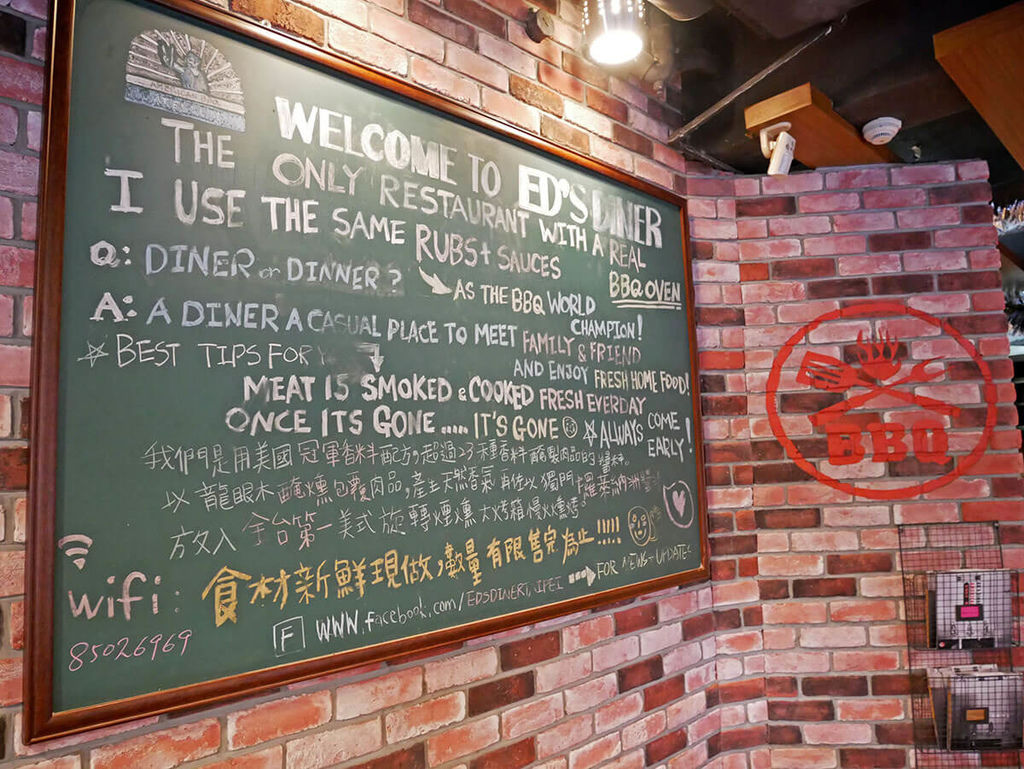 WELCOME TO ED'S DINER
THE ONLY RESTAURANT WITH A REAL BBQ OVEN
I USE THE SAME RUBS + SAUCES
AS THE BBQ WORLD CHAMPION!
Q: DINER or DINNER?
A: A DINER A CASUAL PLACE TO MEET FAMILY & FRIEND
AND ENJOY FRESH HOME FOOD!
BEST TIPS FOR
MEAT IS SMOKED & COOKED FRESH EVERDAY
ONCE ITS GONE..... IT'S GONE
ALWAYS COME EARLY!
我們是用美國冠軍香料配方,超過23種香料醃製肉品的
以龍眼木醃燻包覆肉品,產生天然香氣再佐以獨門
放入全台第一美式旋轉煙燻大烤箱慢火燻烤。
食材新鮮現做,數量有限售完為止!!!!!
wifi:
85026969
F WWW.facebook.com/EDSDINERTAIPEI FOR NEWS + UPDATES
BBQ